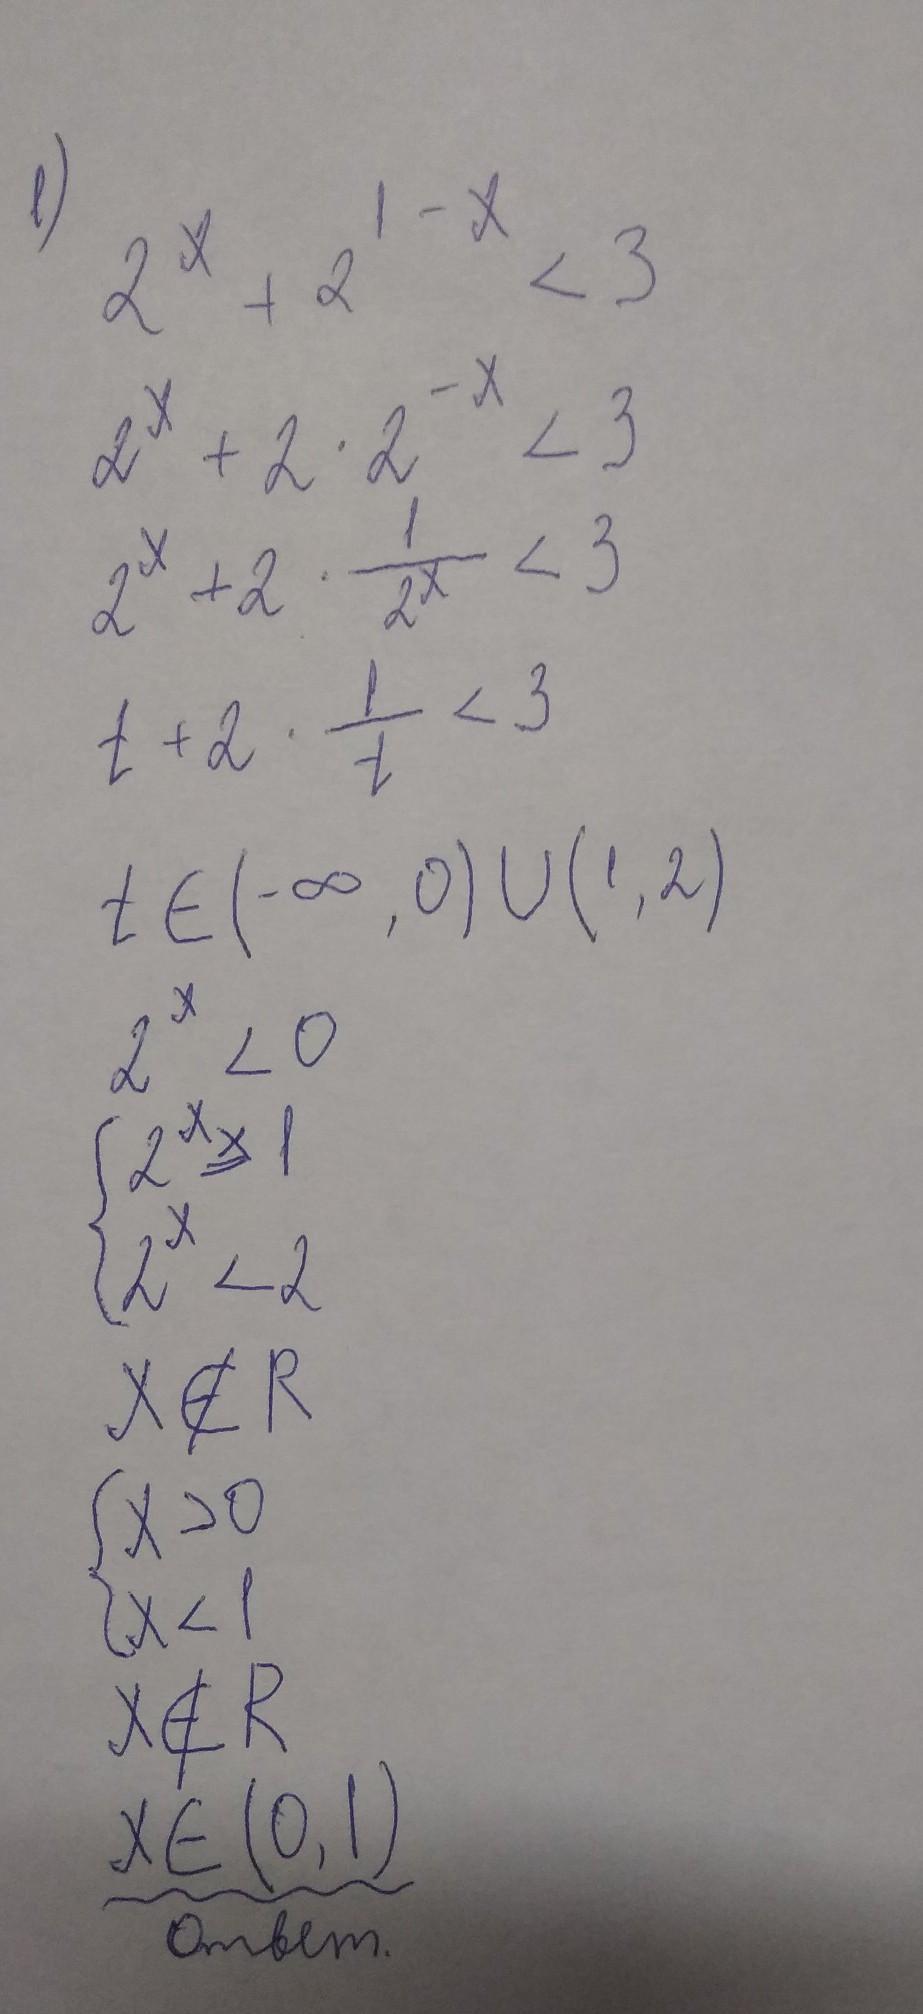 1)
2^x + 2^{1-x} < 3
2^x + 2 · 2^{-x} < 3
2^x + 2 · \frac{1}{2^x} < 3
t + 2 · \frac{1}{t} < 3
t ∈ (-∞, 0) ∪ (1, 2)
2^x < 0
{ 2^x > 1
2^x < 2
x ∉ R
{ x > 0
x < 1
x ∉ R
x ∈ (0, 1)
Ответ.